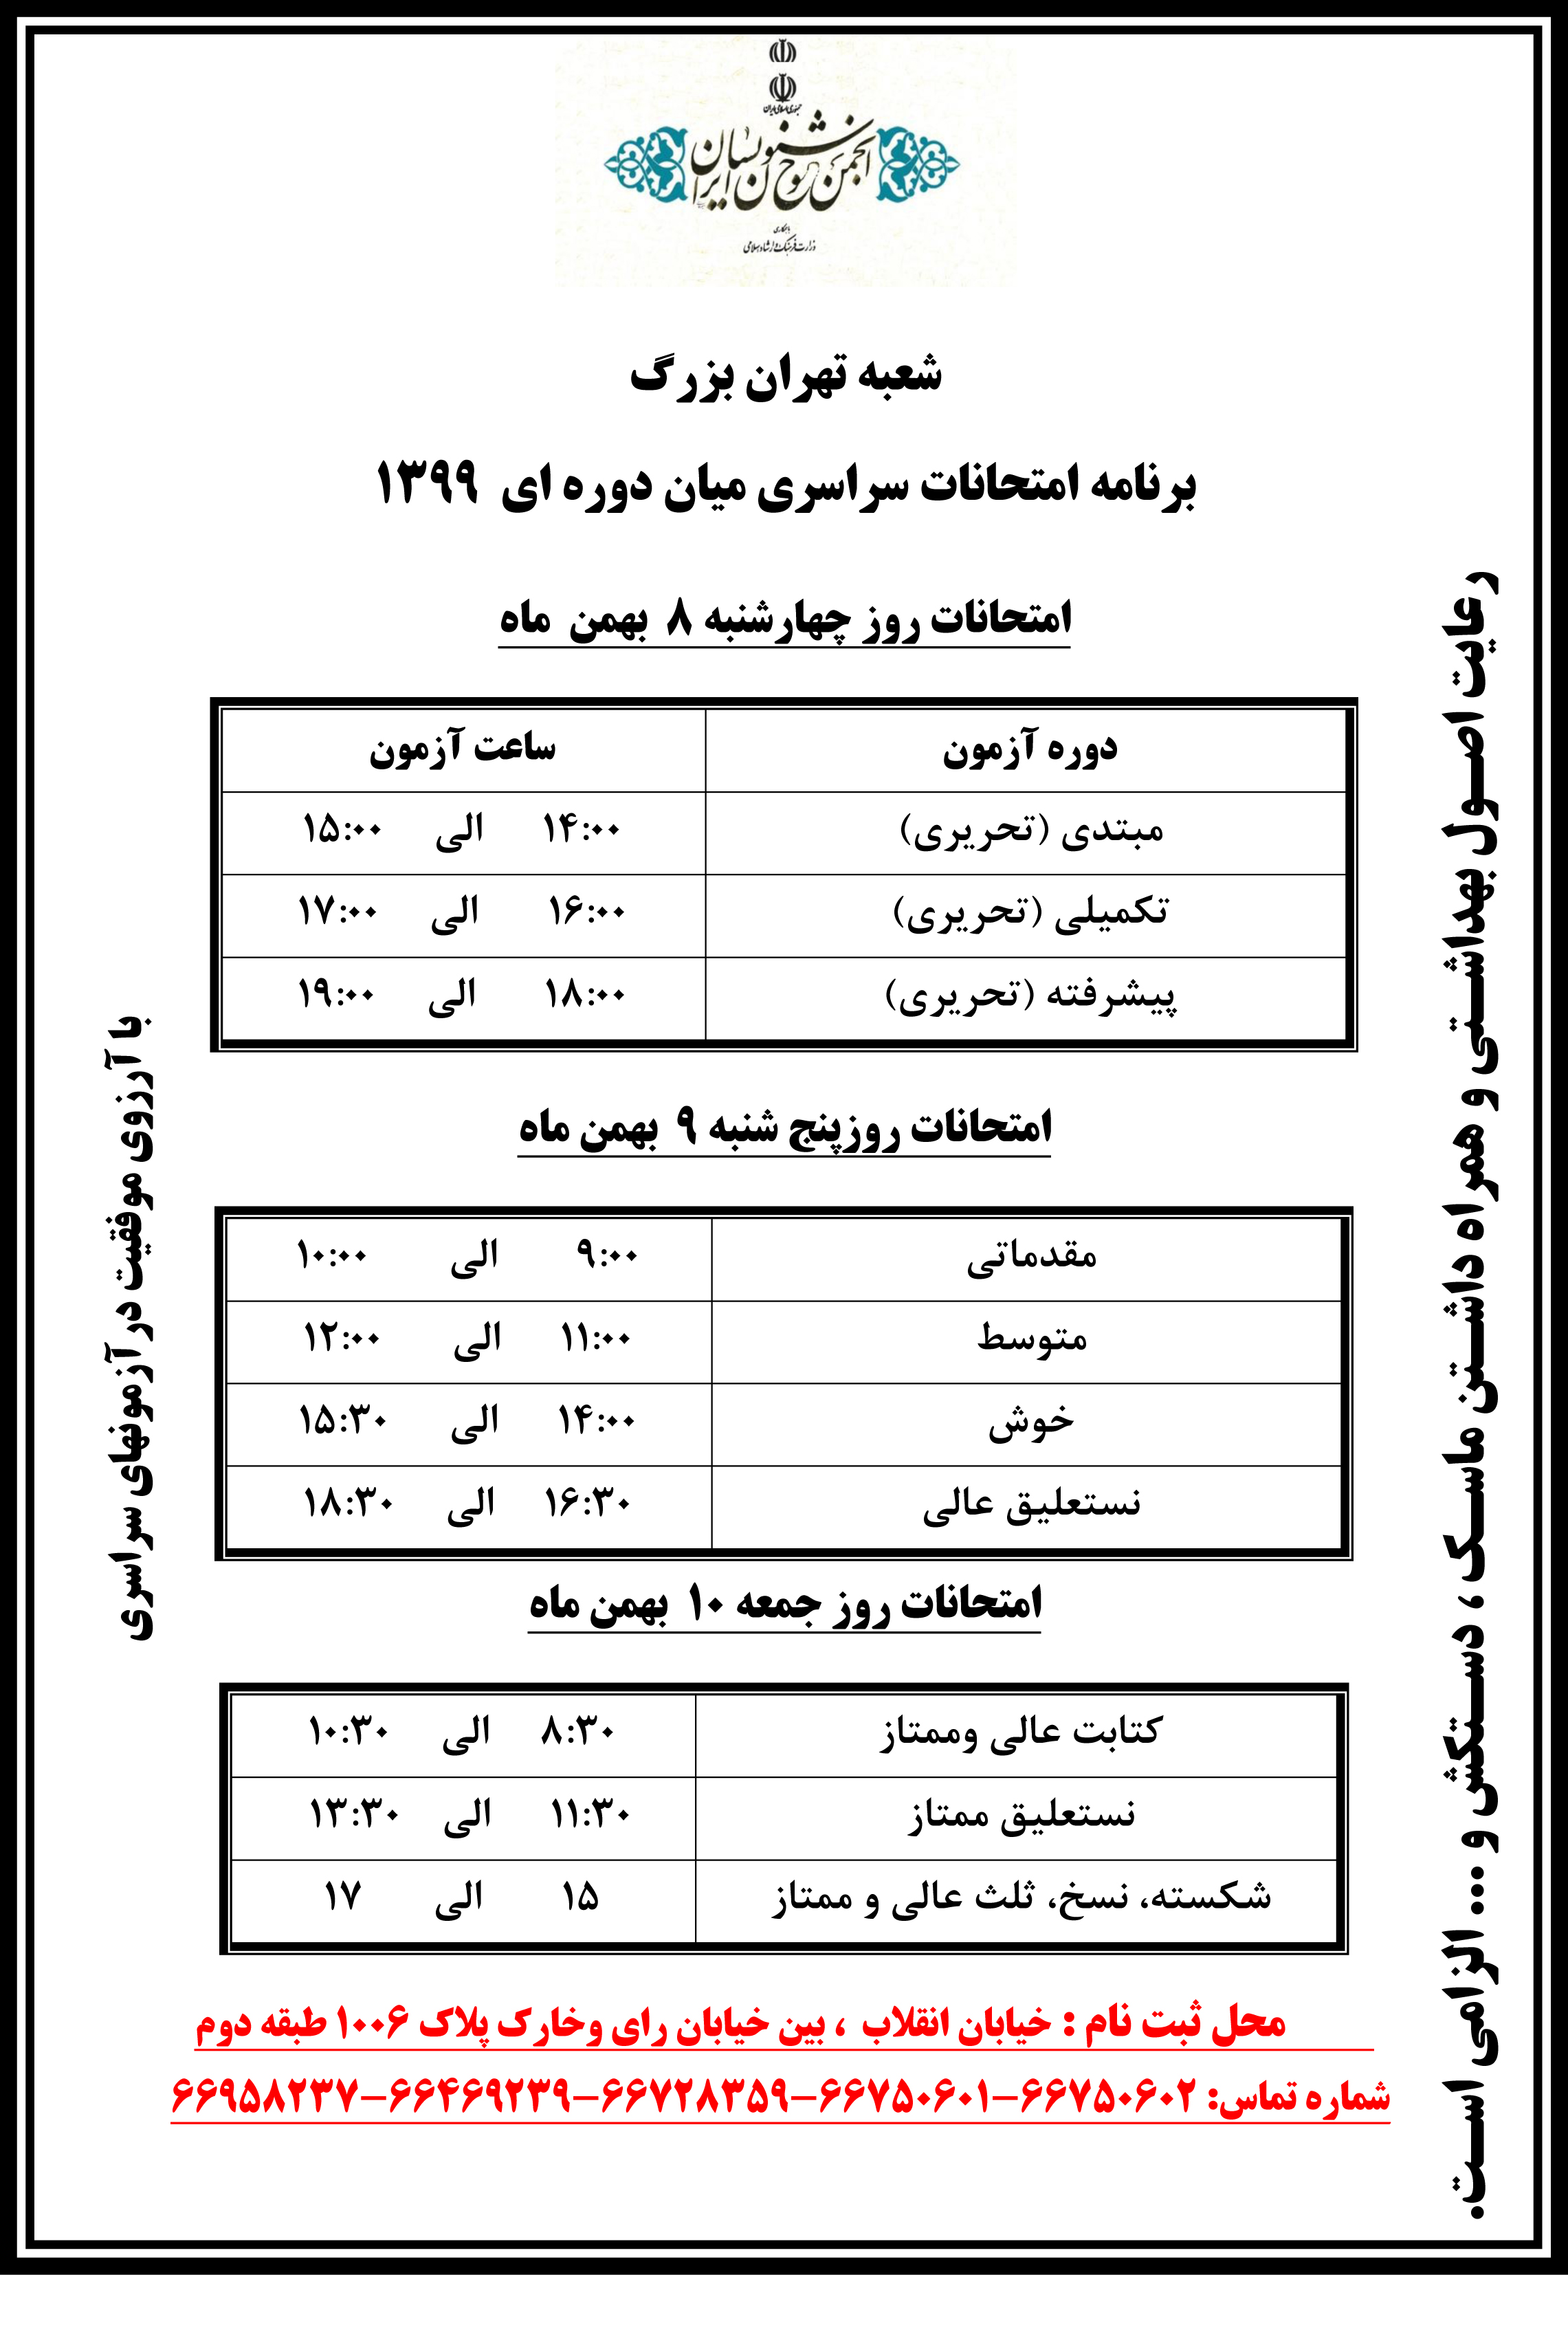 جمهوری اسلامی ایران
انجمن خوشنویسان ایران
با همکاری
وزارت فرهنگ و ارشاد اسلامی
شعبه تهران بزرگ
برنامه امتحانات سراسری میان دوره ای ۱۳۹۹
امتحانات روز چهارشنبه ۸ بهمن ماه
دوره آزمون ساعت آزمون
مبتدی (تحریری) ۱۴:۰۰ الی ۱۵:۰۰
تکمیلی (تحریری) ۱۶:۰۰ الی ۱۷:۰۰
پیشرفته (تحریری) ۱۸:۰۰ الی ۱۹:۰۰
امتحانات روزپنج شنبه ۹ بهمن ماه
مقدماتی ۹:۰۰ الی ۱۰:۰۰
متوسط ۱۱:۰۰ الی ۱۲:۰۰
خوش ۱۴:۰۰ الی ۱۵:۳۰
نستعلیق عالی ۱۶:۳۰ الی ۱۸:۳۰
امتحانات روز جمعه ۱۰ بهمن ماه
کتابت عالی وممتاز ۸:۳۰ الی ۱۰:۳۰
نستعلیق ممتاز ۱۱:۳۰ الی ۱۳:۳۰
شکسته، نسخ، ثلث عالی و ممتاز ۱۵ الی ۱۷
محل ثبت نام : خیابان انقلاب ، بین خیابان رای وخارک پلاک ۱۰۰۶ طبقه دوم
شماره تماس: ۶۶۷۵۰۶۰۲-۶۶۷۵۰۶۰۱-۶۶۷۲۸۳۵۹-۶۶۴۶۹۲۳۹-۶۶۹۵۸۲۳۷
رعایت اصول بهداشتی و همراه داشتن ماسک ، دستکش و ... الزامی است.
با آرزوی موفقیت در آزمونهای سراسری